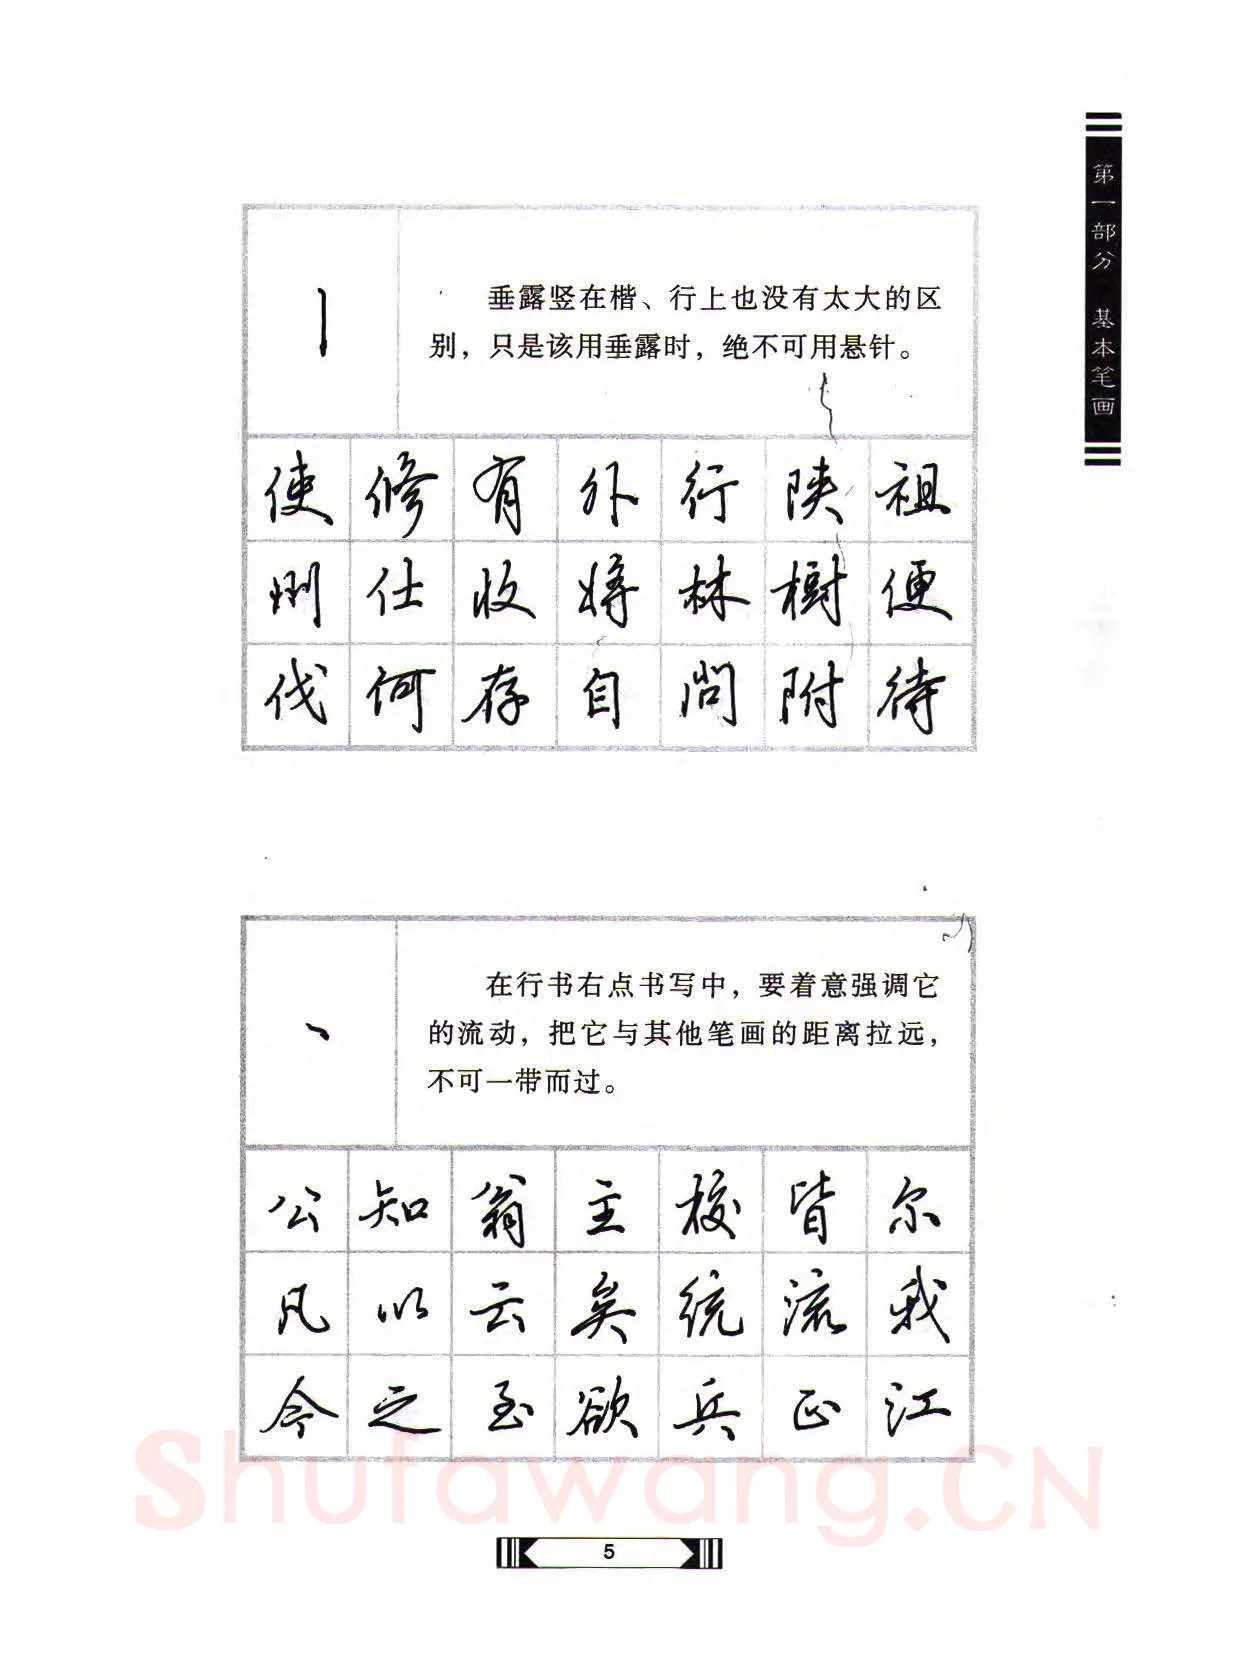 第一部分 基本笔画
垂露竖在楷、行上也没有太大的区
别，只是该用垂露时，绝不可用悬针。
使 修 有 外 行 陕 祖
州 仕 收 将 林 樹 便
伐 何 存 自 尚 附 待
在行书右点书写中，要着意强调它
的流动，把它与其他笔画的距离拉远，
不可一带而过。
公 知 翁 主 校 皆 尔
凡 以 云 矣 统 流 我
今 之 至 欲 兵 正 江
Shufawang.CN
5